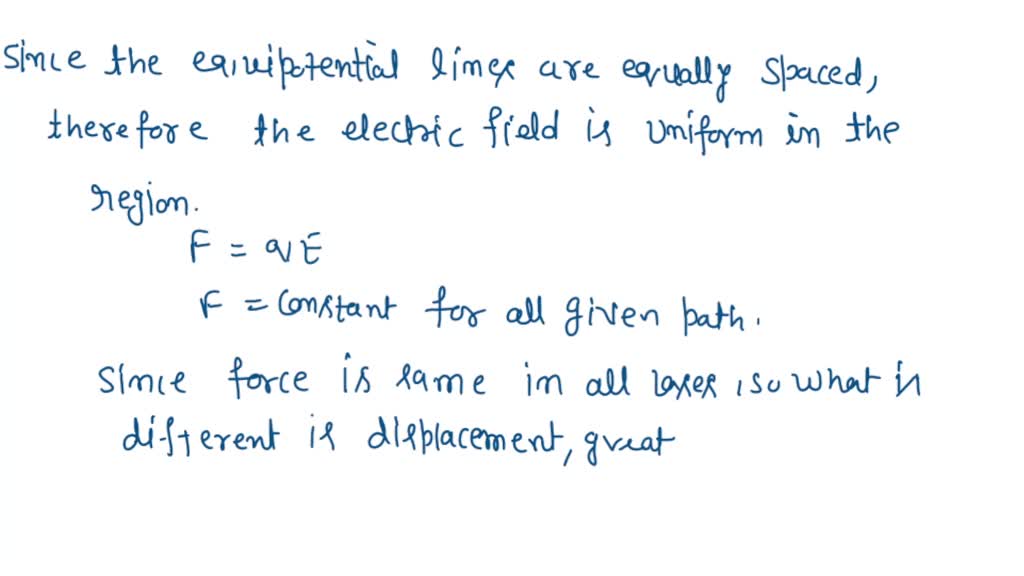 Since the equipotential lines are equally spaced,
therefore the electric field is uniform in the
region.
F = qE
F = constant for all given path.
Since force is same in all cases, so what is
different is displacement, great